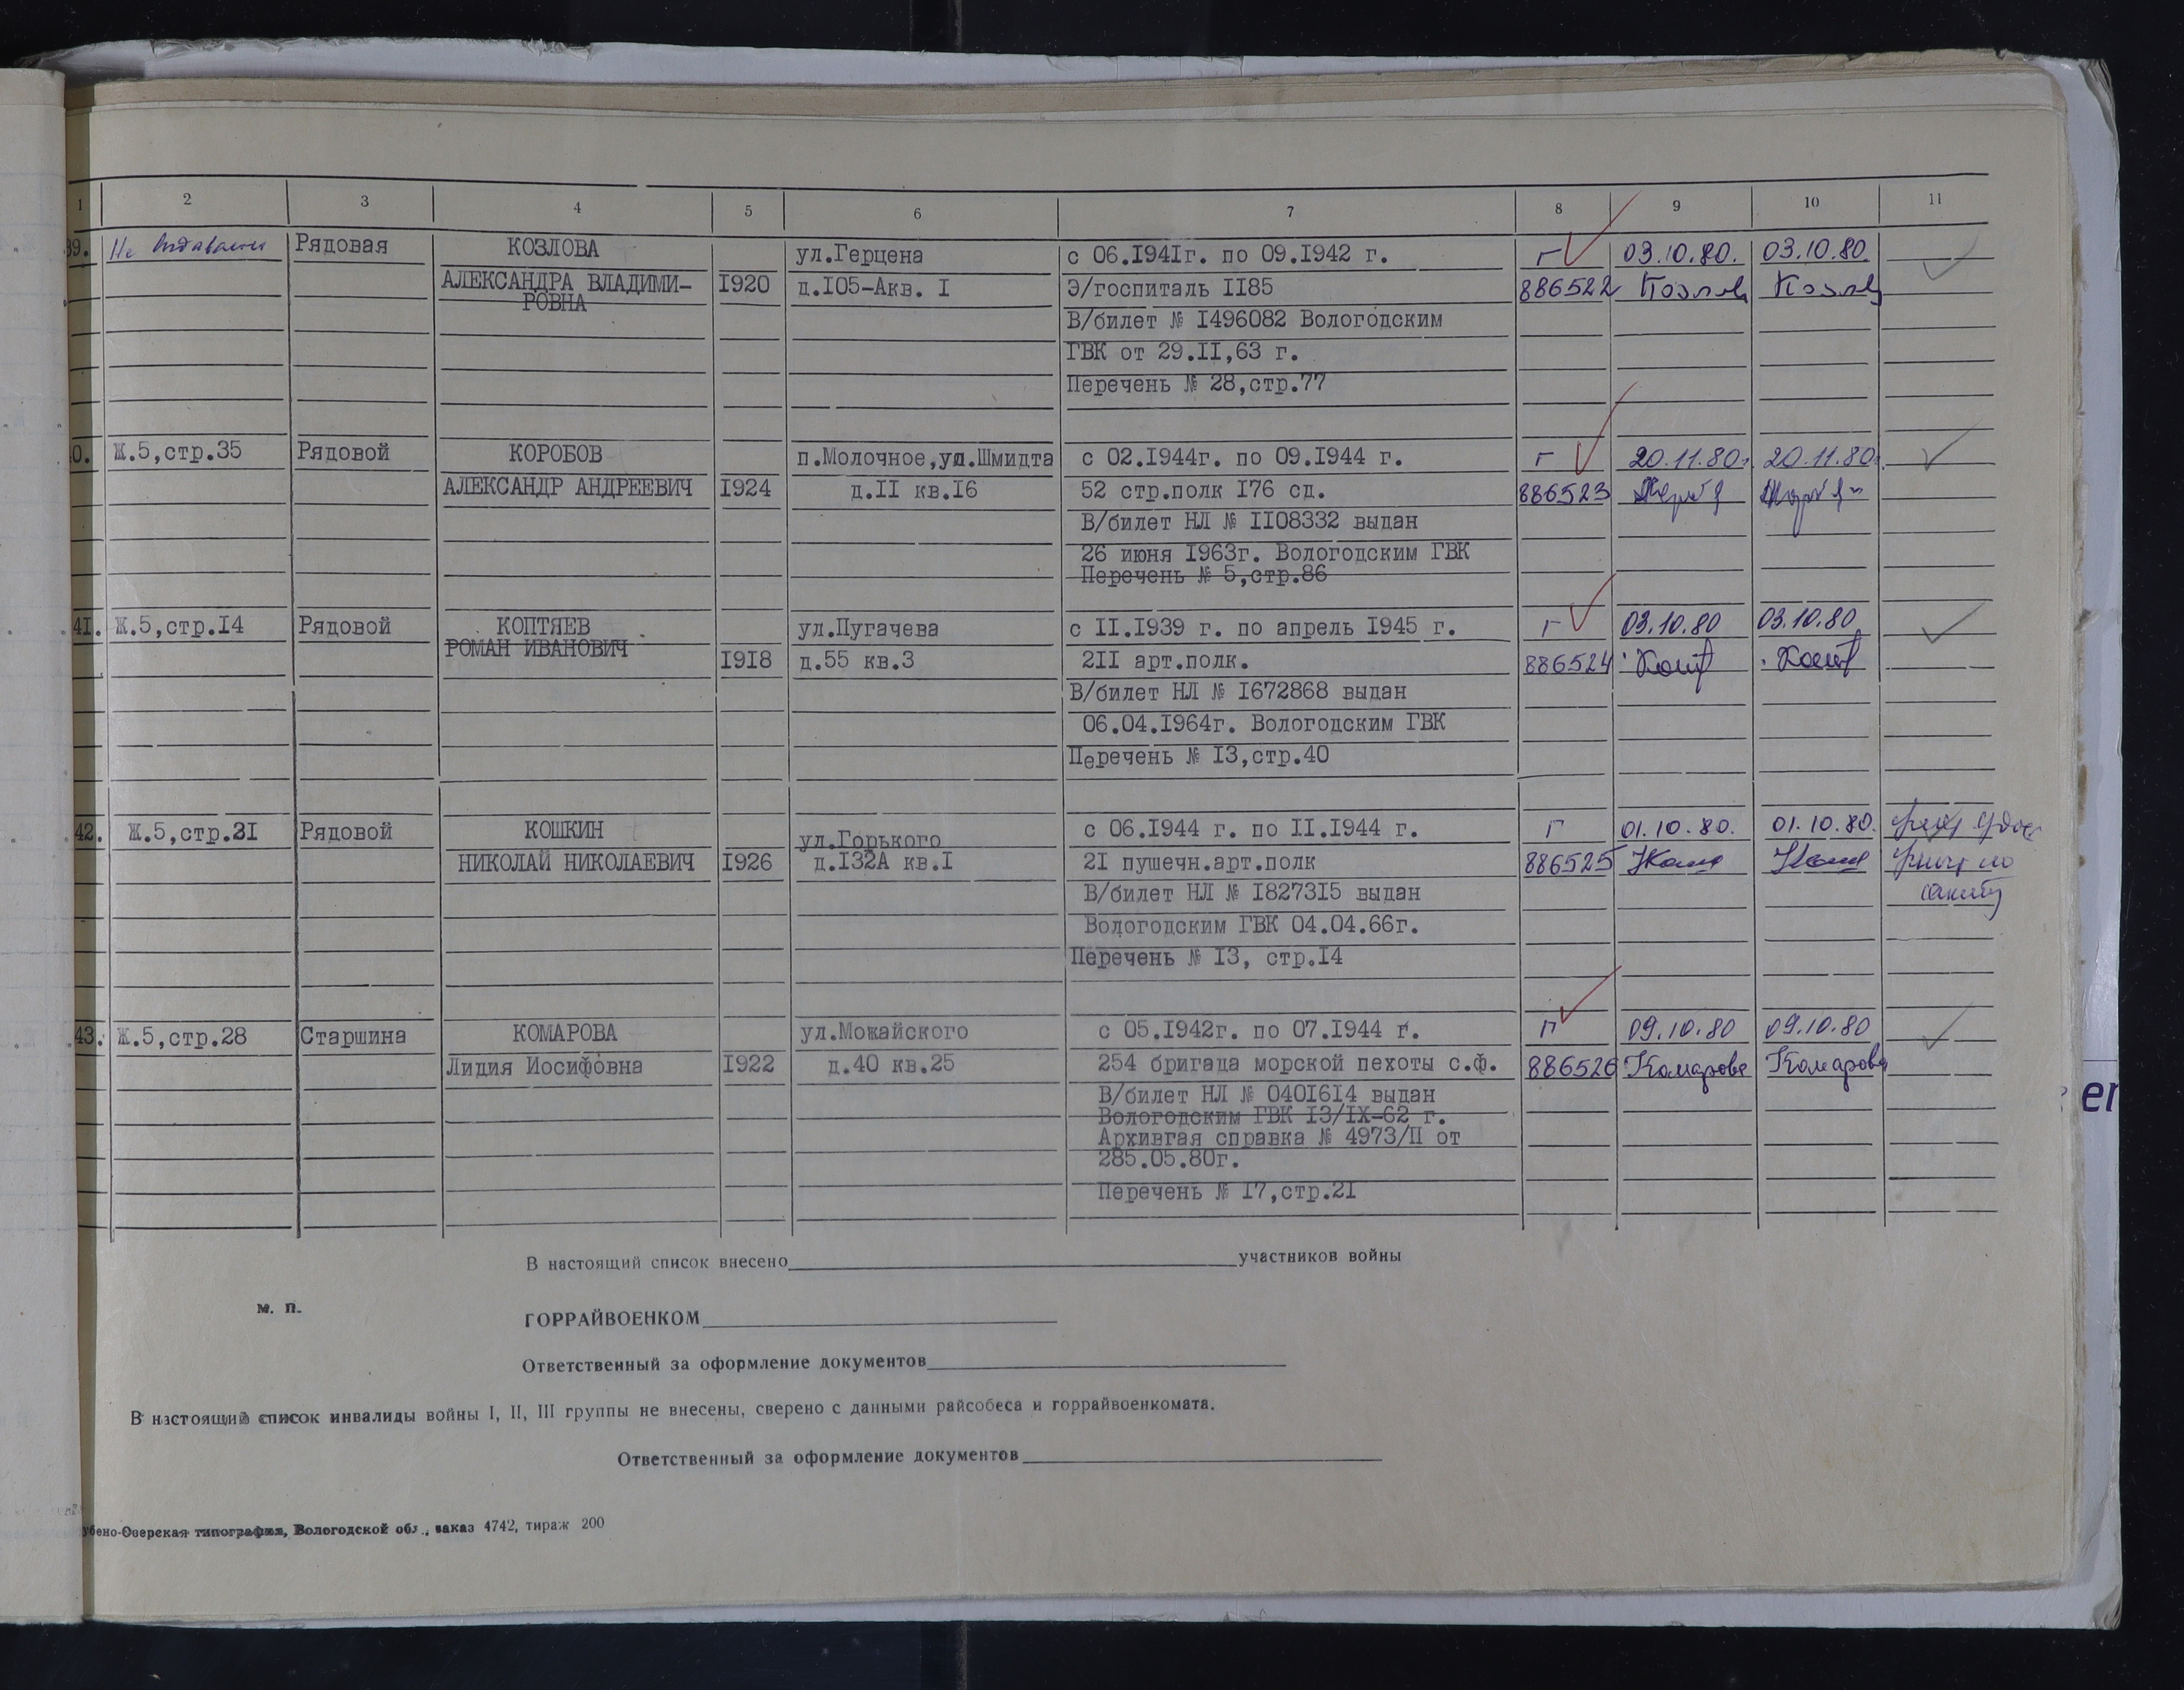 1 2 3 4 5 6 7 8 9 10 11
39. Не Рядовая КОЗЛОВА ул.Герцена с 06.I94Iг. по 09.I942 г. Г 03.10.80. 03.10.80.
АЛЕКСАНДРА ВЛАДИМИ- I920 д.I05-Акв. I Э/госпиталь II85 886522
РОВНА
В/билет № I496082 Вологодским
ГВК от 29.II,63 г.
Перечень № 28,стр.77
0. Ж.5,стр.35 Рядовой КОРОБОВ п.Молочное,ул.Шмидта с 02.I944г. по 09.I944 г. Г 20.11.80. 20.11.80.
АЛЕКСАНДР АНДРЕЕВИЧ I924 д.II кв.I6 52 стр.полк I76 сд. 886523
В/билет НЛ № II08332 выдан
26 июня I963г. Вологодским ГВК
Перечень № 5,стр.86
4I. Ж.5,стр.I4 Рядовой КОПТЯЕВ ул.Пугачева с II.I939 г. по апрель I945 г. Г 03.10.80 03.10.80
РОМАН ИВАНОВИЧ
I9I8 д.55 кв.3 2II арт.полк. 886524
В/билет НЛ № I672868 выдан
06.04.I964г. Вологодским ГВК
Перечень № I3,стр.40
42. Ж.5,стр.2I Рядовой КОШКИН ул.Горького с 06.I944 г. по II.I944 г. Г 01.10.80. 01.10.80.
НИКОЛАЙ НИКОЛАЕВИЧ I926 д.I32А кв.I 2I пушечн.арт.полк 886525
В/билет НЛ № I8273I5 выдан
Вологодским ГВК 04.04.66г.
Перечень № I3, стр.I4
43. Ж.5,стр.28 Старшина КОМАРОВА ул.Можайского с 05.I942г. по 07.I944 г. Г 09.10.80 09.10.80
Лидия Иосифовна I922 д.40 кв.25 254 бригада морской пехоты с.ф. 886526 Комарова Комарова
В/билет НЛ № 040I6I4 выдан
Вологодским ГВК I3/IX-62 г.
Архивгая справка № 4973/П от
285.05.80г.
Перечень № I7,стр.2I
В настоящий список внесено участников войны
м. п.
ГОРРАЙВОЕНКОМ
Ответственный за оформление документов
В настоящий список инвалиды войны I, II, III группы не внесены, сверено с данными райсобеса и горрайвоенкомата.
Ответственный за оформление документов
убено-Озерская типография, Вологодской обл., заказ 4742, тираж 200